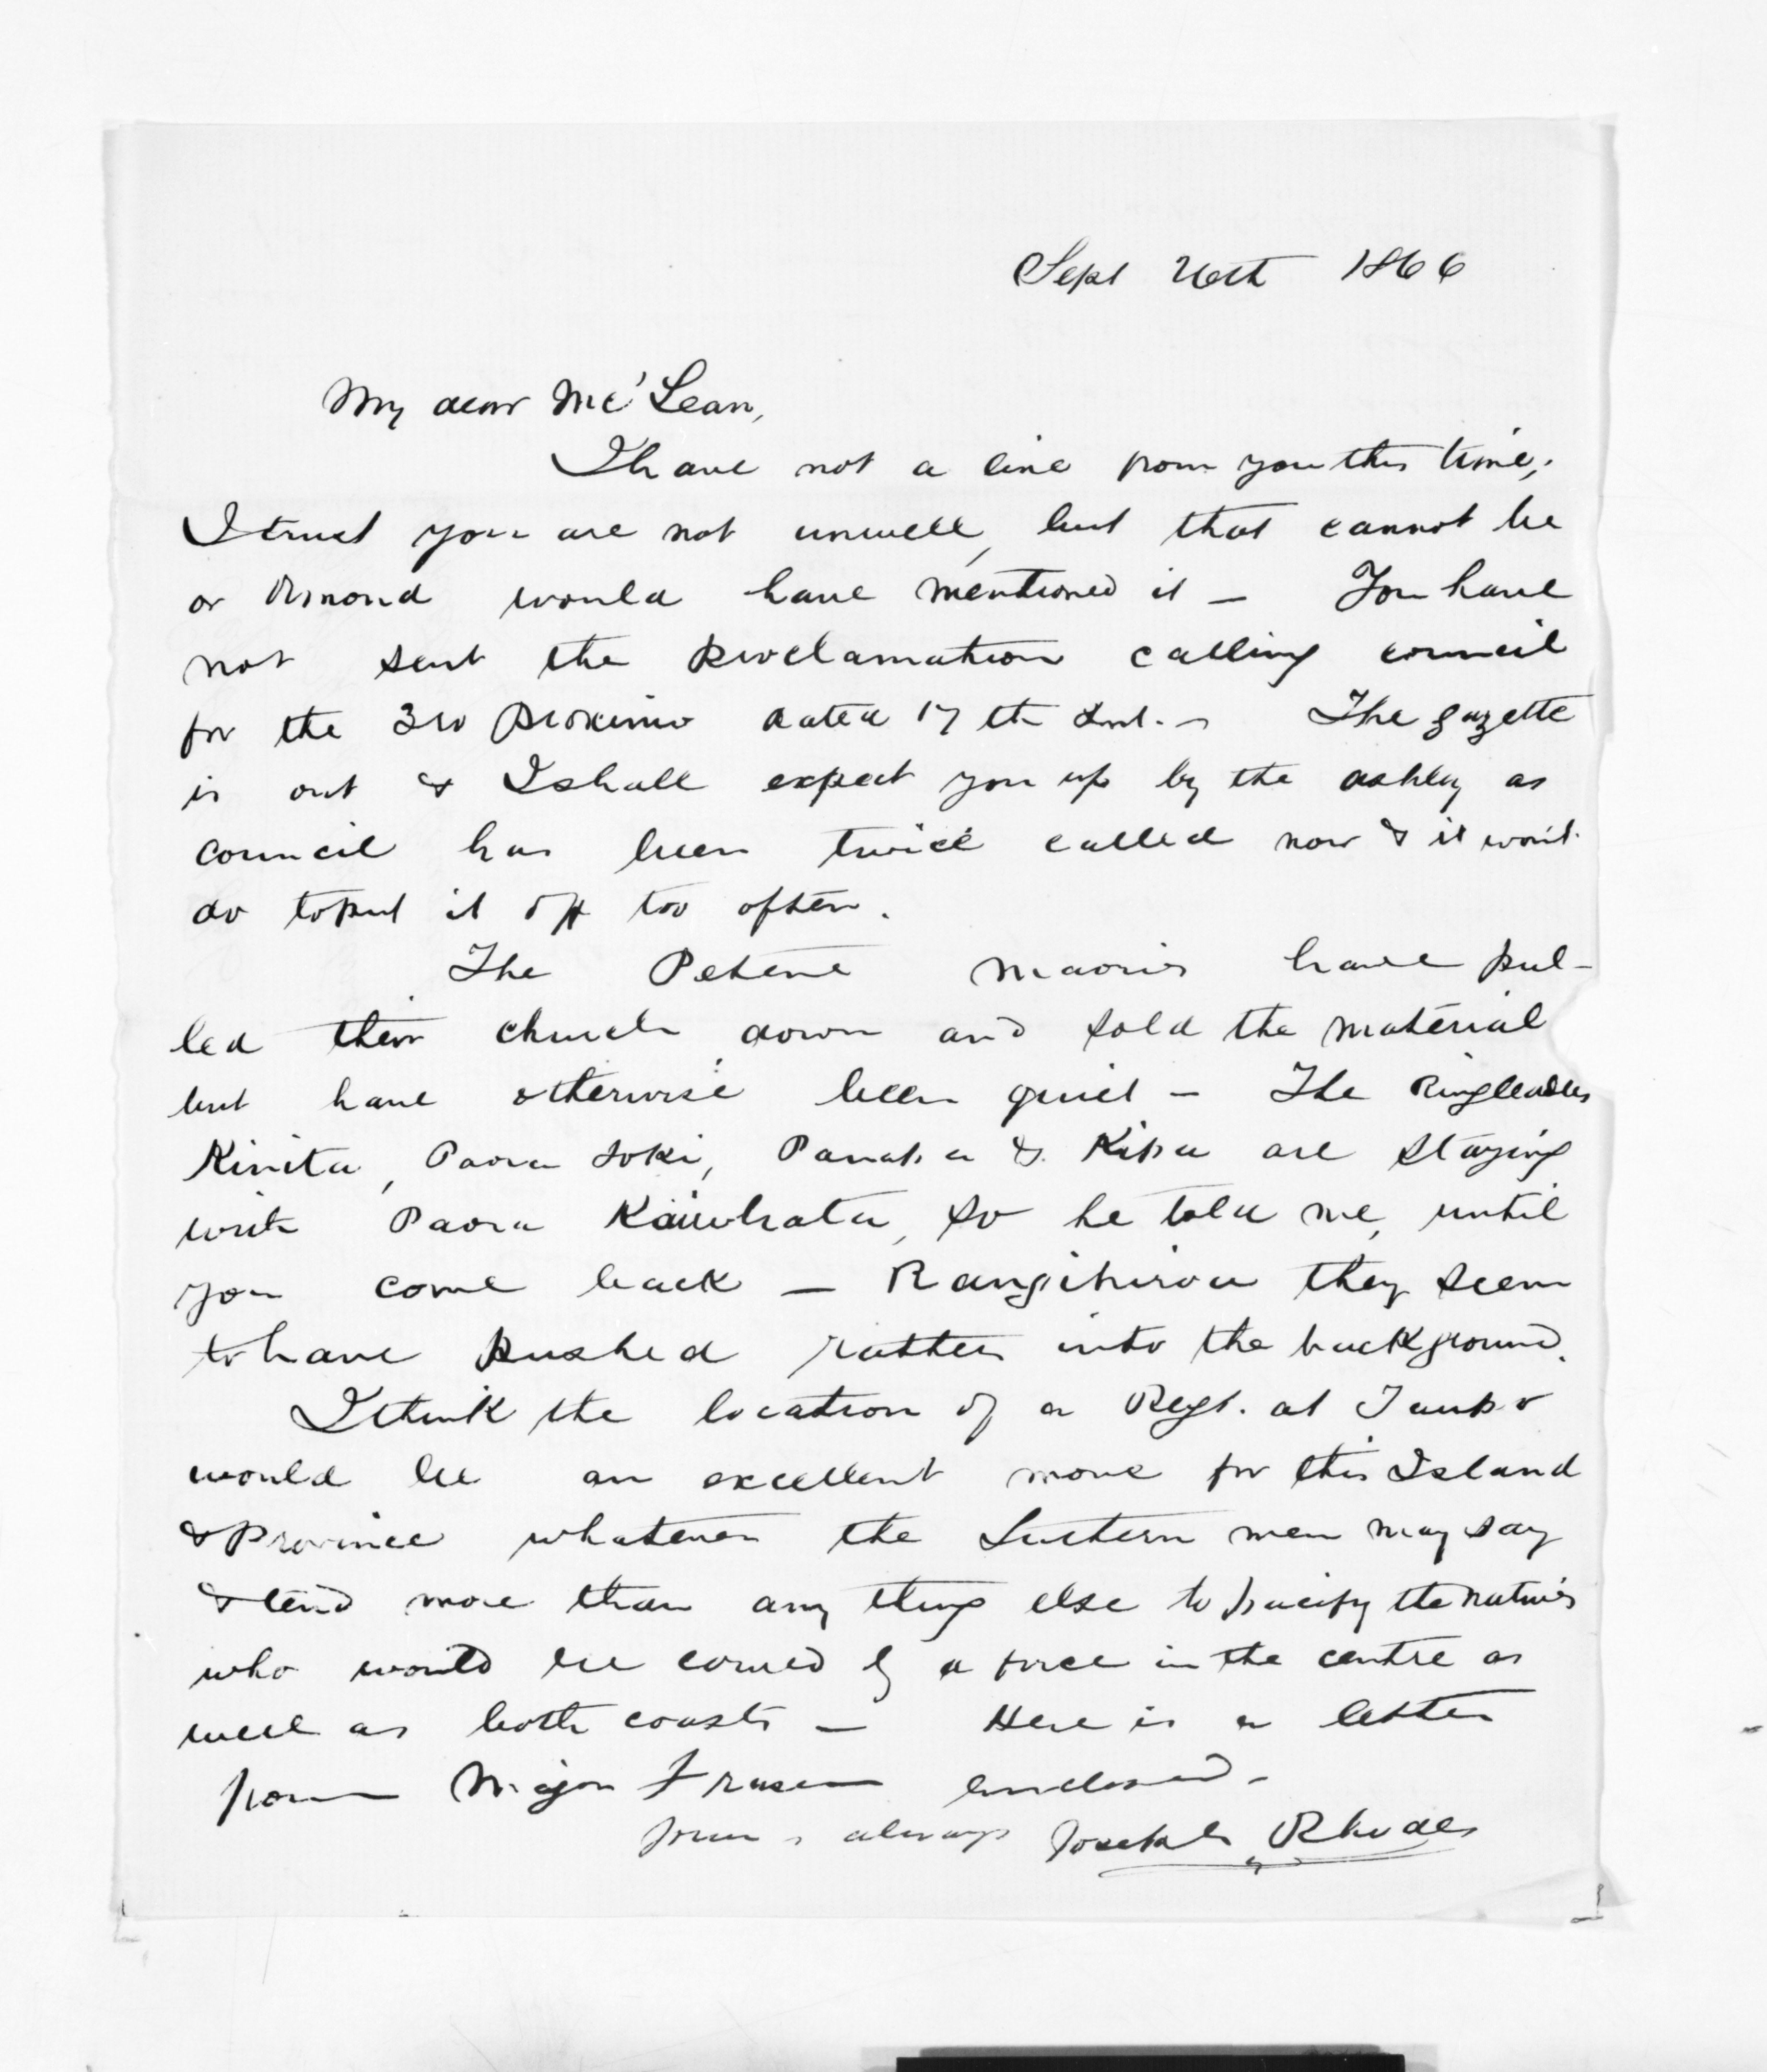 Sept 26th 1866
My dear Mc'Lean,
I have not a line from you this time,
I trust you are not unwell, but that cannot be
or Ormond would have mentioned it — You have
not sent the proclamation calling council
for the 3rd proximo dated 17th Inst. — The gazette
is out & I shall expect you up by the ashley as
council has been twice called now & it won't
do to put it off too often.
The Petane maoris have pul-
led their church down and sold the material
but have otherwise been quiet — The Ringleaders
Kinita, Paora Toki, Panapa & Kipa are staying
with Paora Kaiwhata, so he told me, until
you come back — Rangihiroa they seem
to have pushed rather into the background.
I think the location of a Regt. at Taupo
would be an excellent move for this Island
& Province whatever the Suthern men may say
& tend more than any thing else to pacify the natives
who would be cowed by a force in the centre as
well as both coasts — Here is a letter
from Major Fraser enclosed —
Yours always Joseph Rhodes